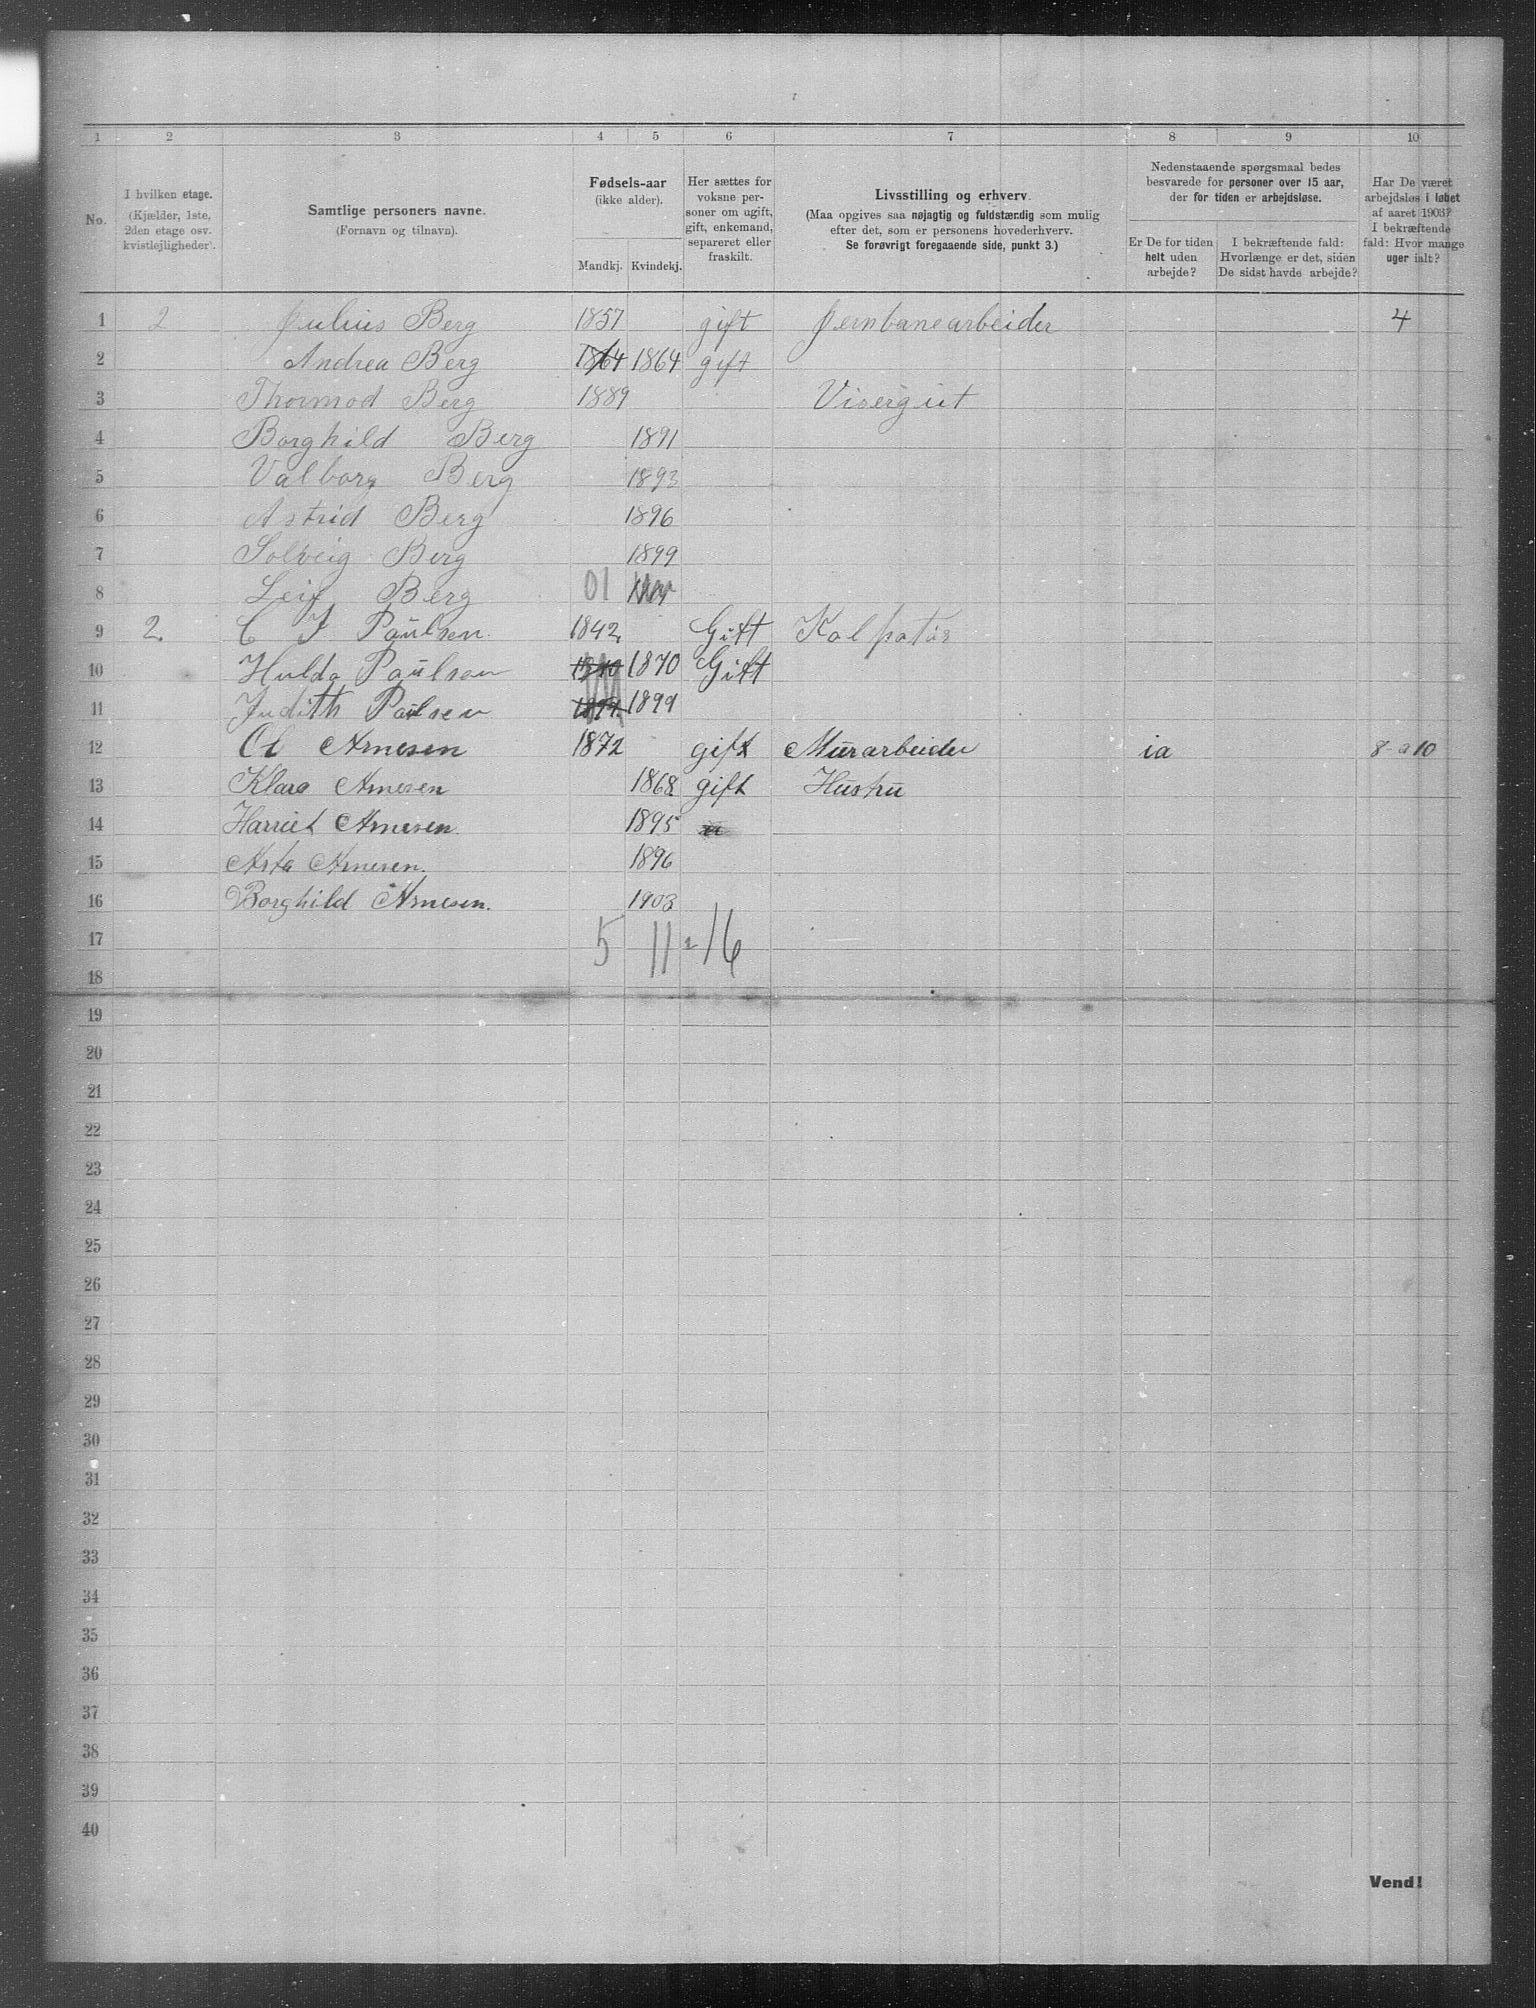 1 2 3 4 5 6 7 8 9 10
No.
I hvilken etage.
(Kjælder, 1ste,
2den etage osv.
kvistlejligheder).
Samtlige personers navne.
(Fornavn og tilnavn).
Fødsels-aar
(ikke alder).
Mandkj. Kvindekj.
Her sættes for
voksne per-
soner om ugift,
gift, enkemand,
separeret eller
fraskilt.
Livsstilling og erhverv.
(Maa opgives saa nøjagtig og fuldstændig som mulig
efter det, som er personens hovederhverv.
Se forøvrigt foregaaende side, punkt 3.)
Nedenstaaende spørgsmaal bedes
besvarede for personer over 15 aar,
der for tiden er arbejdsløse.
Er De for tiden
helt uden
arbejde?
I bekræftende fald:
Hvorlænge er det, siden
De sidst havde arbejde?
Har De været
arbejdsløs i løbet
af aaret 1903?
I bekræftende
fald: Hvor mange
uger ialt?
1 2 Julius Berg 1857 gift Jernbanearbeider 4
2 Andrea Berg 1864 1864 gift
3 Thormod Berg 1889 Visergut
4 Borghild Berg 1891
5 Valborg Berg 1893
6 Astrid Berg 1896
7 Solveig Berg 1899
8 Leif Berg 01
9 2. C J Paulsen 1842. Gift
10 Hulda Paulsen 1870 Gift
11 Judith Paulsen 1899
12 Ol Arnesen 1872 gift Murarbeider ia 8 a 10
13 Klara Arnesen 1868 gift Hustru
14 Harriet Arnesen 1895
15 Asta Arnesen. 1896
16 Borghild Arnesen. 1903
17 5 11 = 16
18
19
20
21
22
23
24
25
26
27
28
29
30
31
32
33
34
35
36
37
38
39
40
Vend!